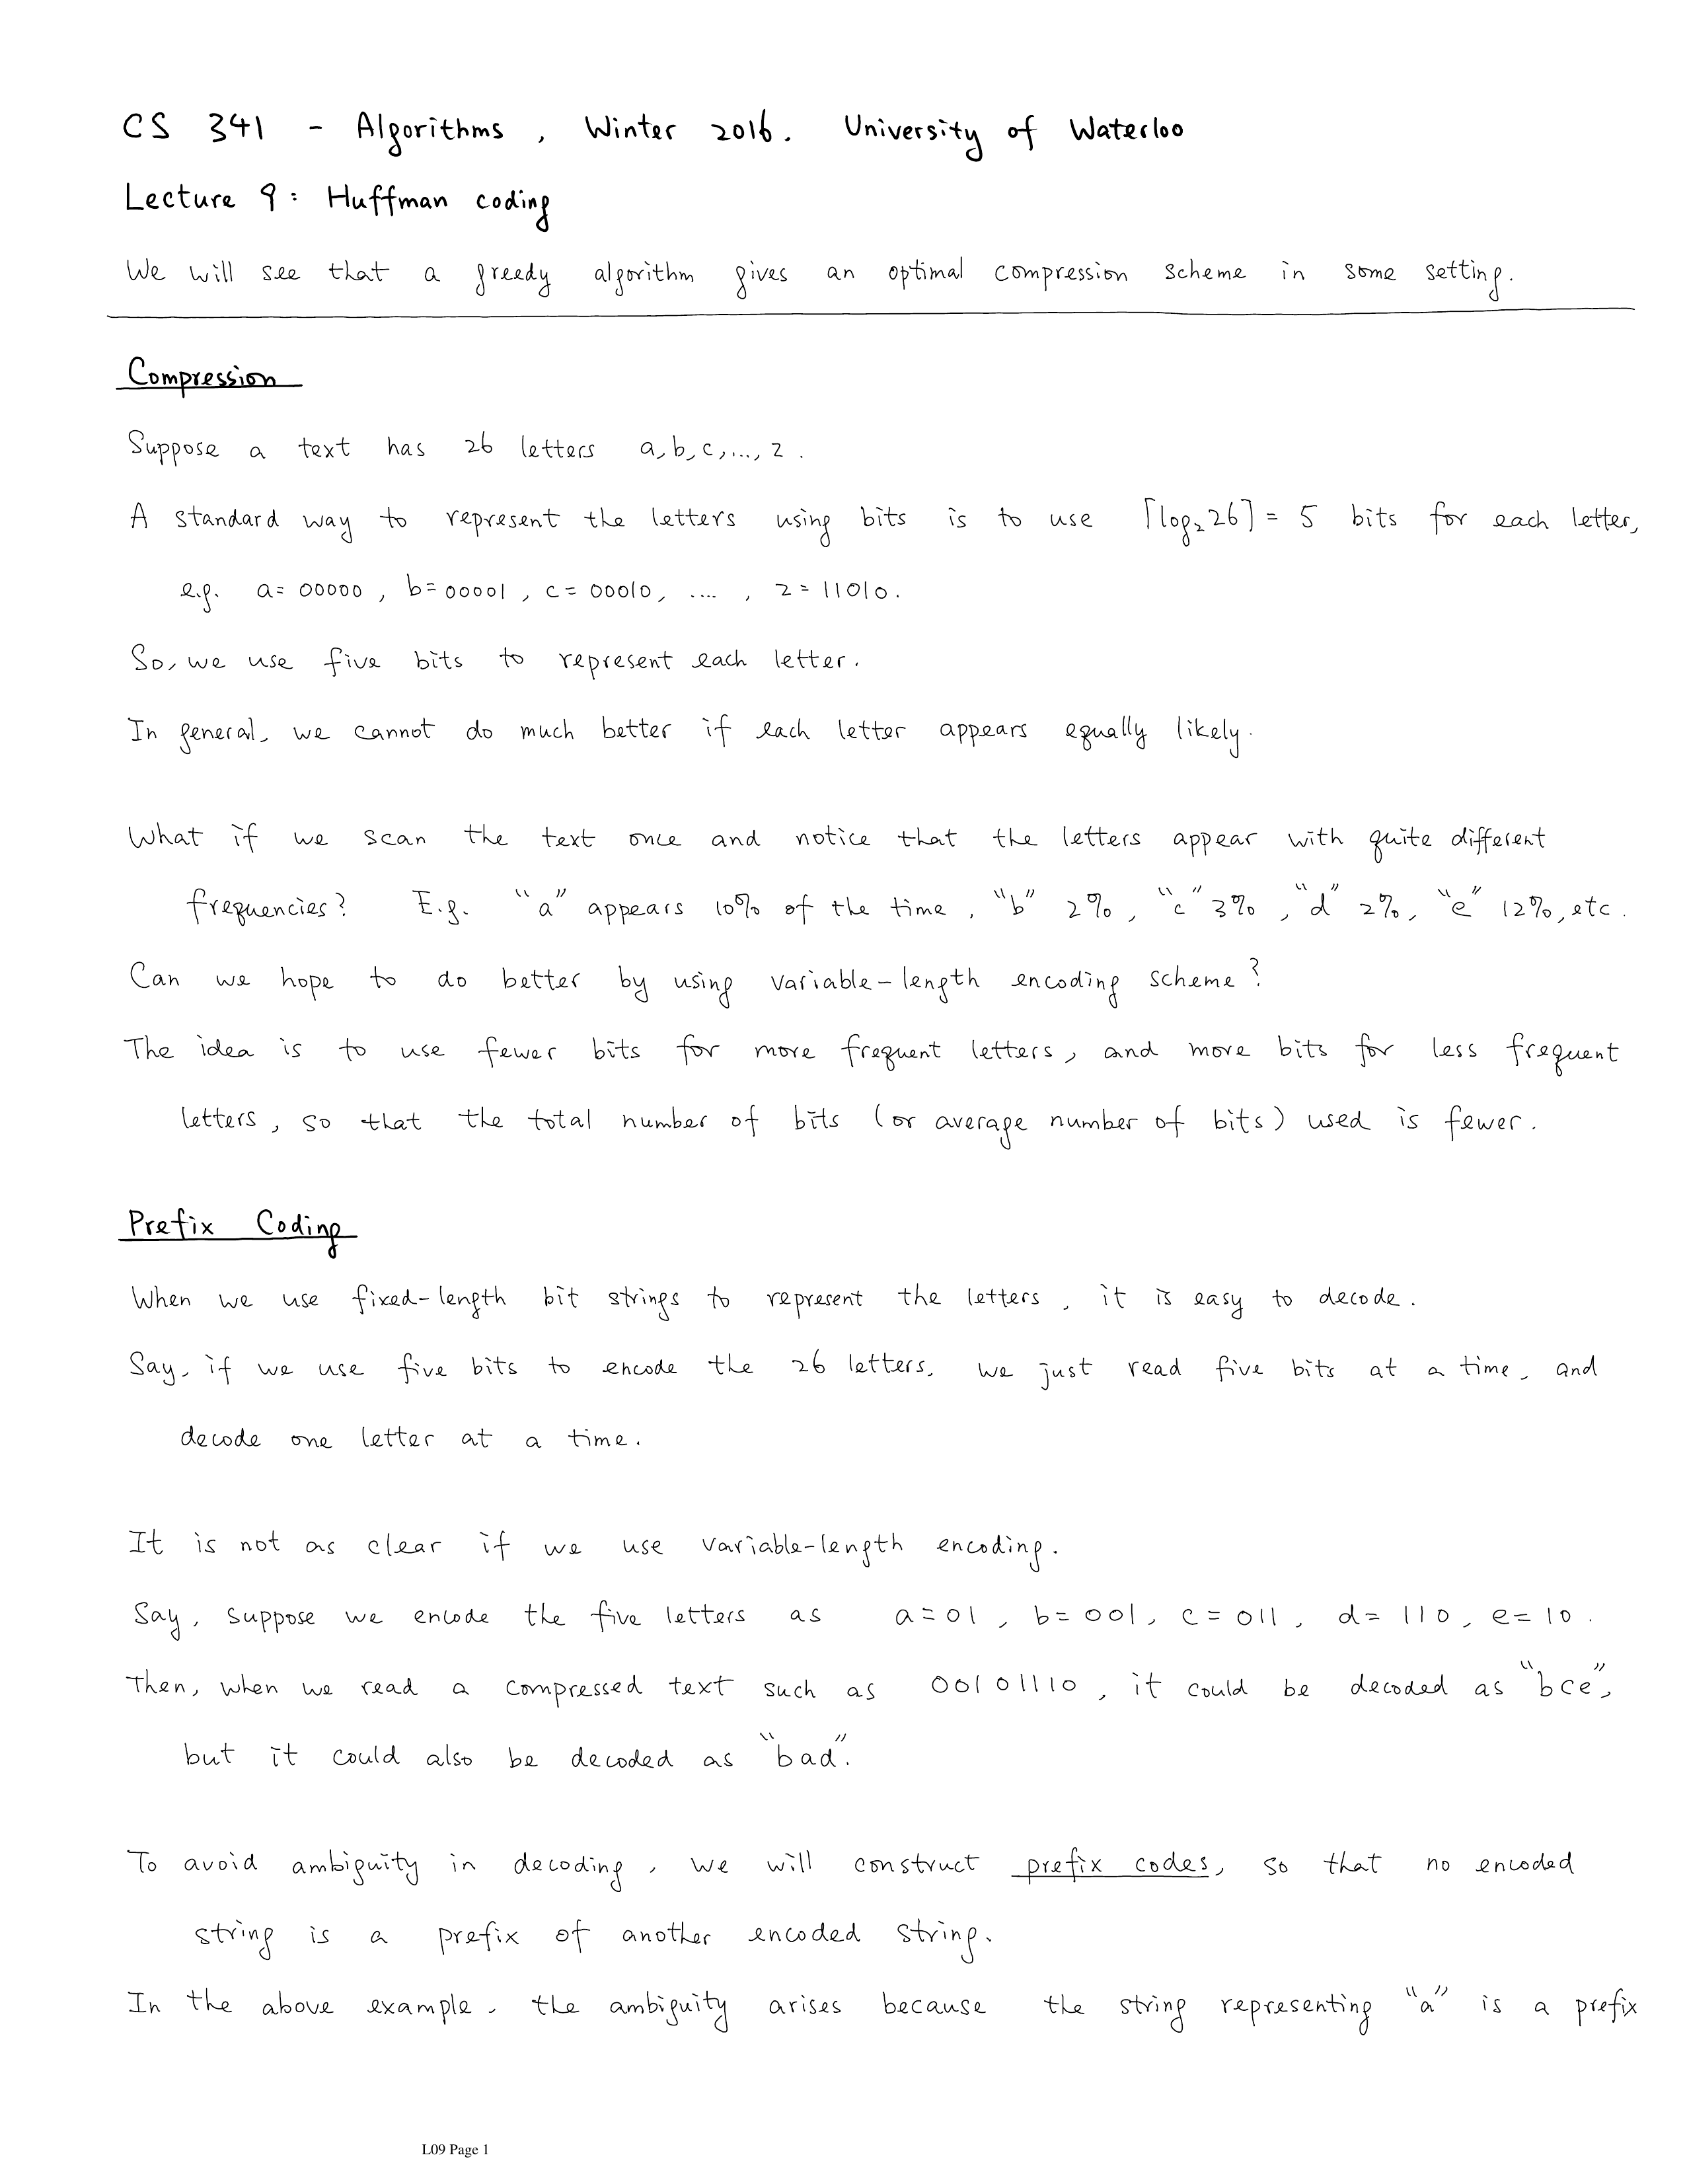 CS 341 - Algorithms, Winter 2016. University of Waterloo
Lecture 9: Huffman coding
We will see that a greedy algorithm gives an optimal compression scheme in some setting.
Compression
Suppose a text has 26 letters a,b,c,...,z.
A standard way to represent the letters using bits is to use ⌈log₂26⌉ = 5 bits for each letter,
e.g. a=00000, b=00001, c=00010, ...., z=11010.
So, we use five bits to represent each letter.
In general, we cannot do much better if each letter appears equally likely.
What if we scan the text once and notice that the letters appear with quite different
frequencies? E.g. "a" appears 10% of the time, "b" 2%, "c" 3%, "d" 2%, "e" 12%, etc.
Can we hope to do better by using variable-length encoding scheme?
The idea is to use fewer bits for more frequent letters, and more bits for less frequent
letters, so that the total number of bits (or average number of bits) used is fewer.
Prefix Coding
When we use fixed-length bit strings to represent the letters, it is easy to decode.
Say, if we use five bits to encode the 26 letters, we just read five bits at a time, and
decode one letter at a time.
It is not as clear if we use variable-length encoding.
Say, suppose we encode the five letters as a=01, b=001, c=011, d=110, e=10.
Then, when we read a compressed text such as 00101110, it could be decoded as "bce",
but it could also be decoded as "bad".
To avoid ambiguity in decoding, we will construct prefix codes, so that no encoded
string is a prefix of another encoded string.
In the above example, the ambiguity arises because the string representing "a" is a prefix
L09 Page 1